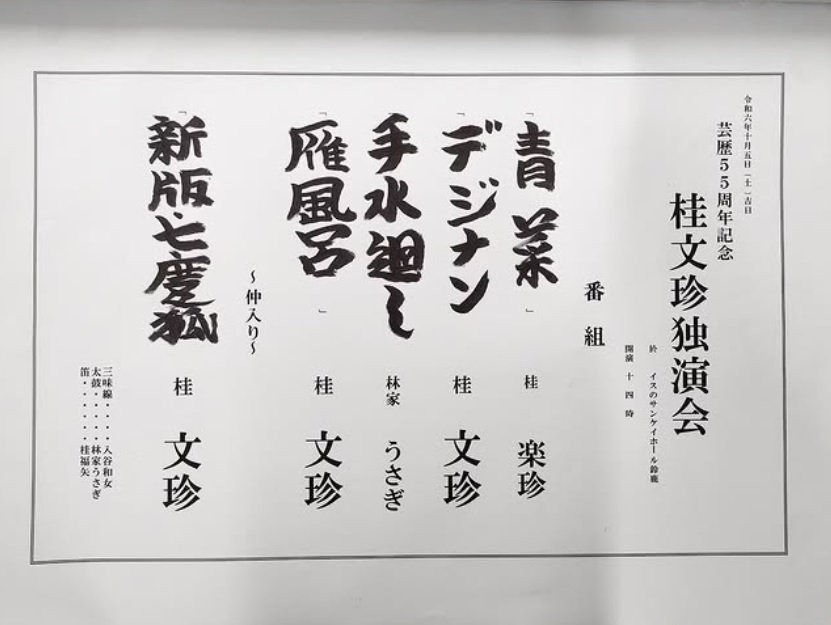 令和六年十月五日（土）吉日
芸歴55周年記念
桂文珍独演会
於 イスのサンケイホール鈴鹿
開演 十四時
番組
「青菜」 桂 楽珍
「デジナン」 桂 文珍
「手水廻し」 林家 うさぎ
「雁風呂」 桂 文珍
～仲入り～
「新版・七度狐」 桂 文珍
三味線・・・・入谷和女
太鼓・・・・・林家うさぎ
笛・・・・・・桂福矢